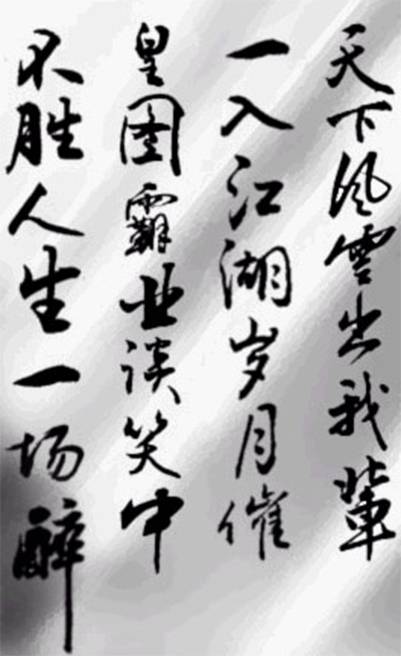 天下风雲出我輩
一入江湖岁月催
皇图霸业谈笑中
不胜人生一场醉